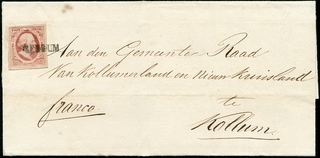 Aan den Gemeenten Raad
Van Kollumerland en Nieuw Kruisland
te
franco
Kollum.